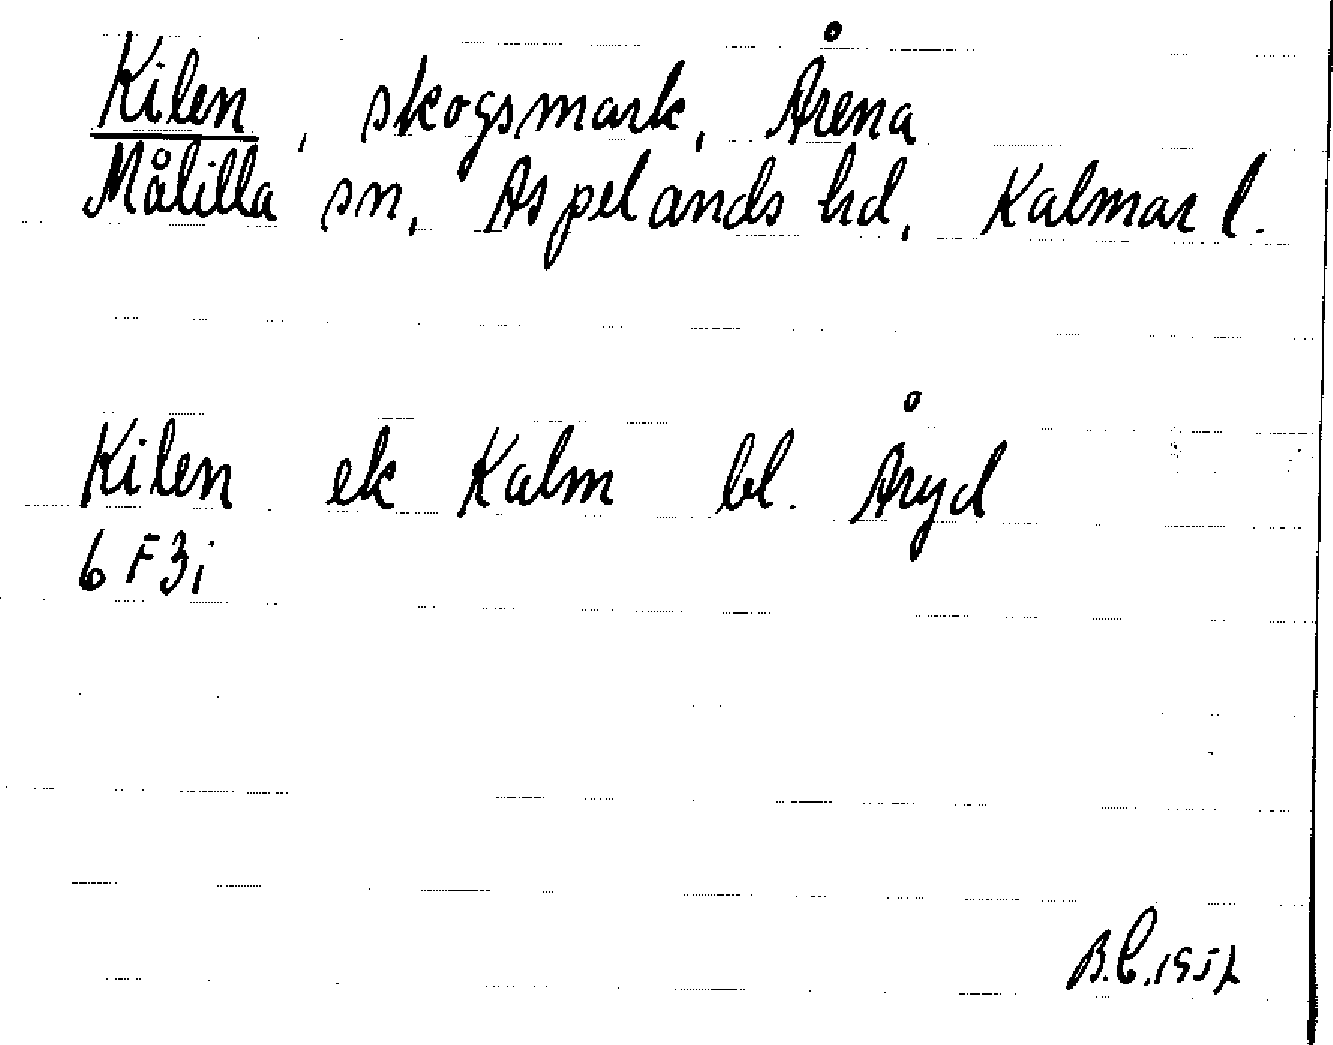 Kilen, skogsmark, Årena
Målilla sn, Aspelands hd, Kalmar l.
Kilen ek Kalm bl. Åryd
6 F 3 i